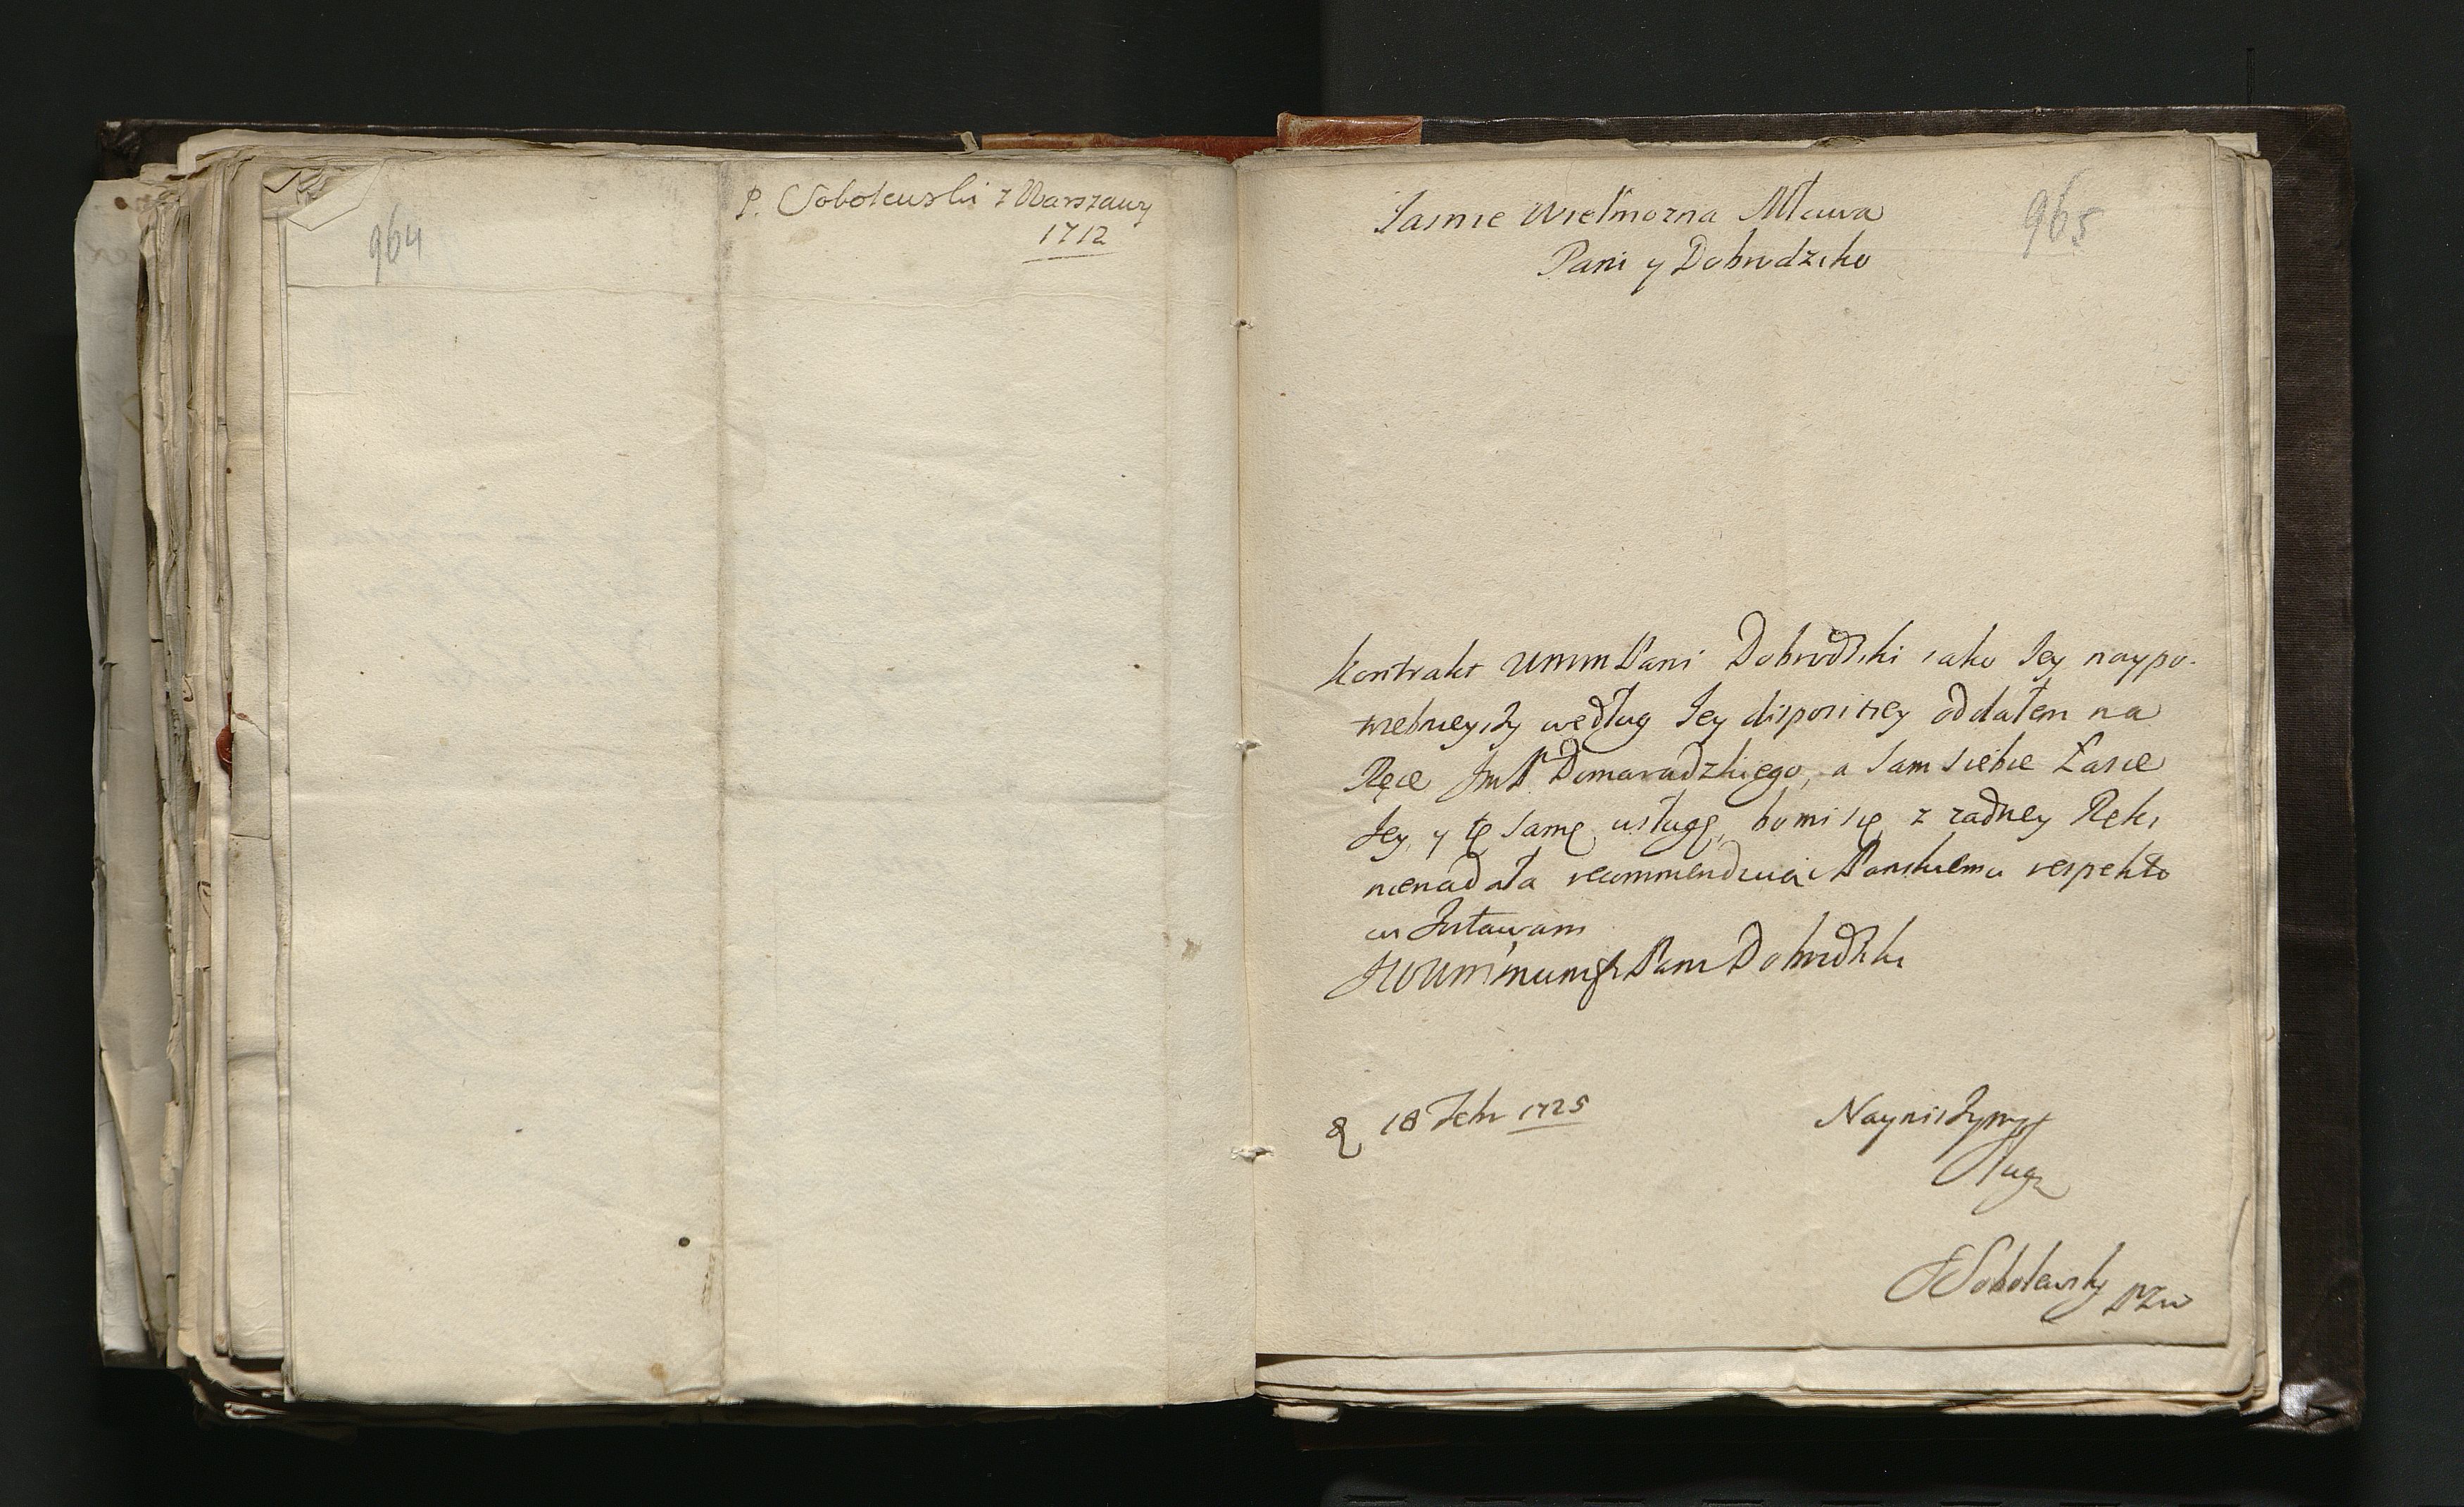 964
P. Sobolewski z Warszawy
1712
965
Jasnie Wielmozna Mława
Pani y Dobrodziko
Kontrakt WMM Pani Dobrodziki iako Jey naypo-
trzebnieyszy według Jey disposiciey oddałem na
Ręce JmP. Domaradzkiego, a sam siebie Łasce
Jey, y tę samę usługę, bomi się z zadney Ręki
nienadała recommenduiąc Panskiemu respekto
wi Zostawam
JWWM Pani Dobrodziki
18 Febr 1725
Nayniszszym
Sługą
Sobolewsky